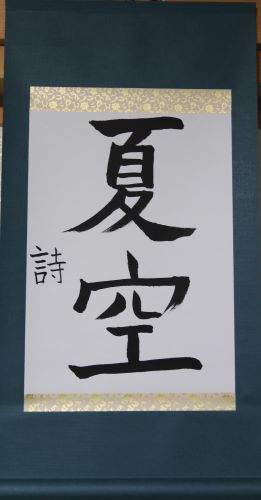 夏空
詩